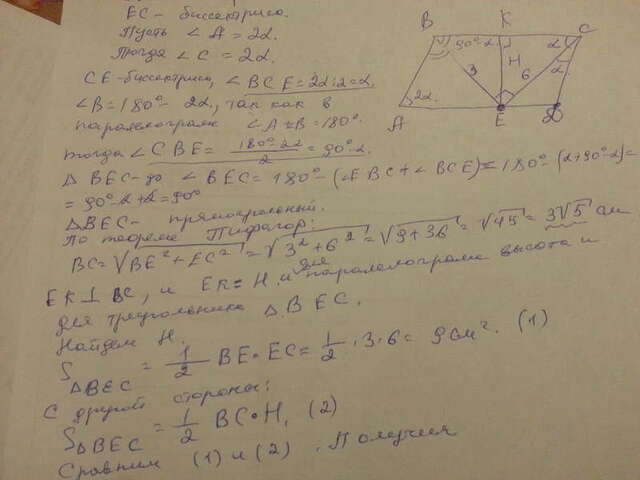 ЕС - биссектриса.
Пусть ∠A = 2α.
Тогда ∠C = 2α.
CE - биссектриса, ∠BCE = 2α:2 = α.
∠B = 180° - 2α, так как в
параллелограме ∠A + ∠B = 180°.
Тогда ∠CBE = (180° - 2α)/2 = 90° - α.
Δ BEC - ∠BEC = 180° - (∠EBC + ∠BCE) = 180° - (α + 90° - α) =
= 90° - α + α = 90°
ΔBEC - прямоугольный.
По теореме Пифагор:
BC = √BE² + EC² = √3² + 6² = √9 + 36 = √45 = 3√5 см
EK ⊥ BC, и EK = H. и для параллелограма высота и
для треугольника Δ BEC.
Найдем H.
S ΔBEC = 1/2 BE · EC = 1/2 · 3 · 6 = 9 см². (1)
С другой стороны:
S ΔBEC = 1/2 BC · H, (2)
Сравним (1) и (2). Получим
B K C
90°-α α
H α
3 6
2α
A E D